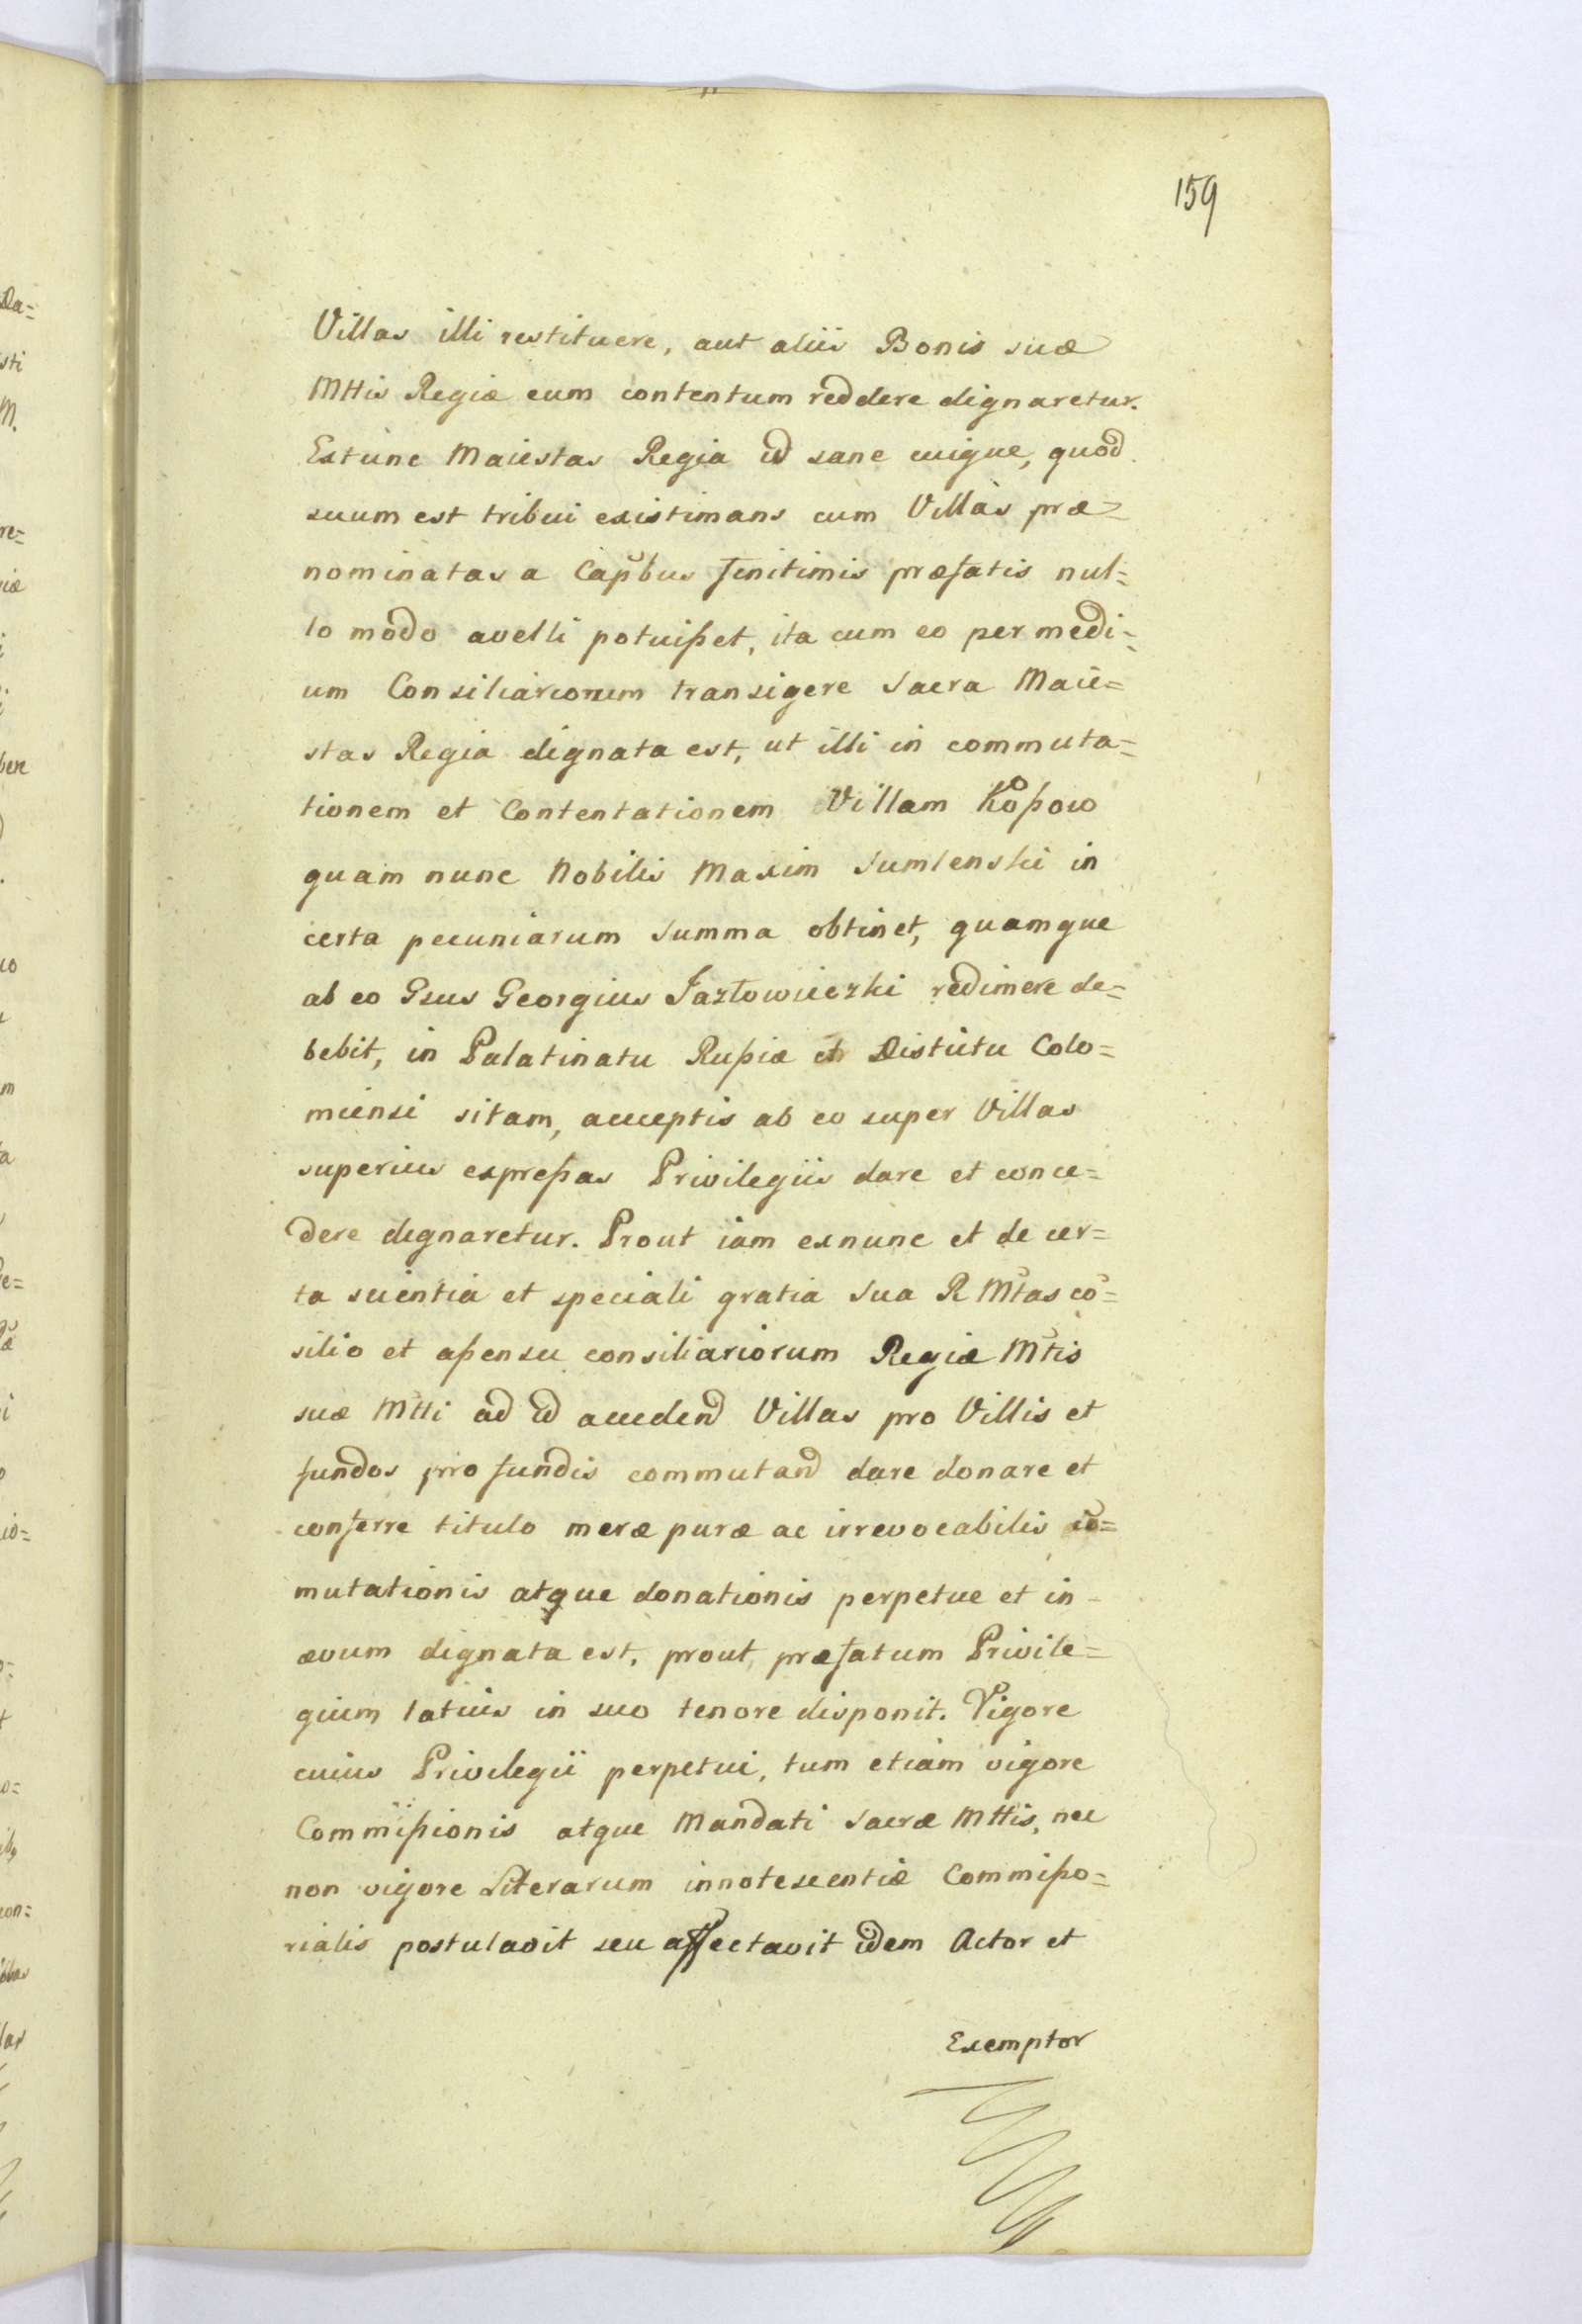 159
Villas illi restituere, aut aliis Bonis suæ
Mttis Regiæ eum contentum reddere dignaretur.
Extunc Maiestas Regia id sane cuique, quod
suum est tribui existimans cum Villas præ=
nominatas a Capũbus finitimis præfatis nul=
lo modo avelli potuißet, ita cum eo per medi=
um Consiliariorum transigere Sacra Maie=
stas Regia dignata est, ut illi in commuta=
tionem et Contentationem Villam Koßow
quam nunc Nobilis Maxim Sumlenski in
certa pecuniarum Summa obtinet, quamque
ab eo Gsus Georgius Jazłowieczki redimere de=
bebit, in Palatinatu Rußiæ et Districtu Colo=
miensi sitam, acceptis ab eo super Villas
superius expreßas Privilegiis dare et conce=
dere dignaretur. Prout iam exnunc et de cer=
ta scientia et speciali gratia Sua R Mtas cõ=
silio et aßensu consiliariorum Regiæ Mtis
suæ Mtti ad id accedend Villas pro Villis et
fundos pro fundis commutand dare donare et
conferre titulo meræ puræ ac irrevocabilis cõ=
mutationis atque donationis perpetue et in
ævum dignata est, prout præfatum Privile=
gium latius in suo tenore disponit. Vigore
cuius Privilegii perpetui, tum etiam vigore
Commißionis atque Mandati Sacræ Mttis, nec
non vigore Literarum innotescentiæ Commißo=
rialis postulavit seu affectavit idem Actor et
Exemptor